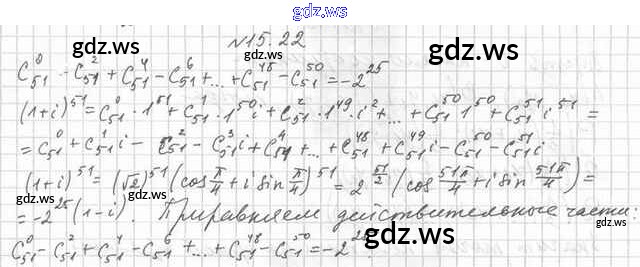 gdz.ws
№15.22
C₅₁⁰ - C₅₁² + C₅₁⁴ - C₅₁⁶ + ... + C₅₁⁴⁸ - C₅₁⁵⁰ = -2²⁵
(1+i)⁵¹ = C₅₁⁰·1⁵¹ + C₅₁¹·1⁵⁰i + C₅₁²·1⁴⁹·i² + ... + C₅₁⁵⁰1⁵⁰ + C₅₁⁵¹i⁵¹ =
= C₅₁⁰ + C₅₁¹i - C₅₁² - C₅₁³i + C₅₁⁴ + ... + C₅₁⁴⁸ + C₅₁⁴⁹i - C₅₁⁵⁰ - C₅₁⁵¹i
(1+i)⁵¹ = (√2)⁵¹(cos π/4 + i sin π/4)⁵¹ = 2^(51/2)(cos 51π/4 + i sin 51π/4) =
= -2²⁵(1-i). Приравняем действительные части:
C₅₁⁰ - C₅₁² + C₅₁⁴ - C₅₁⁶ + ... + C₅₁⁴⁸ - C₅₁⁵⁰ = -2²⁵
gdz.ws
gdz.ws
gdz.ws
gdz.ws
gdz.ws
gdz.ws